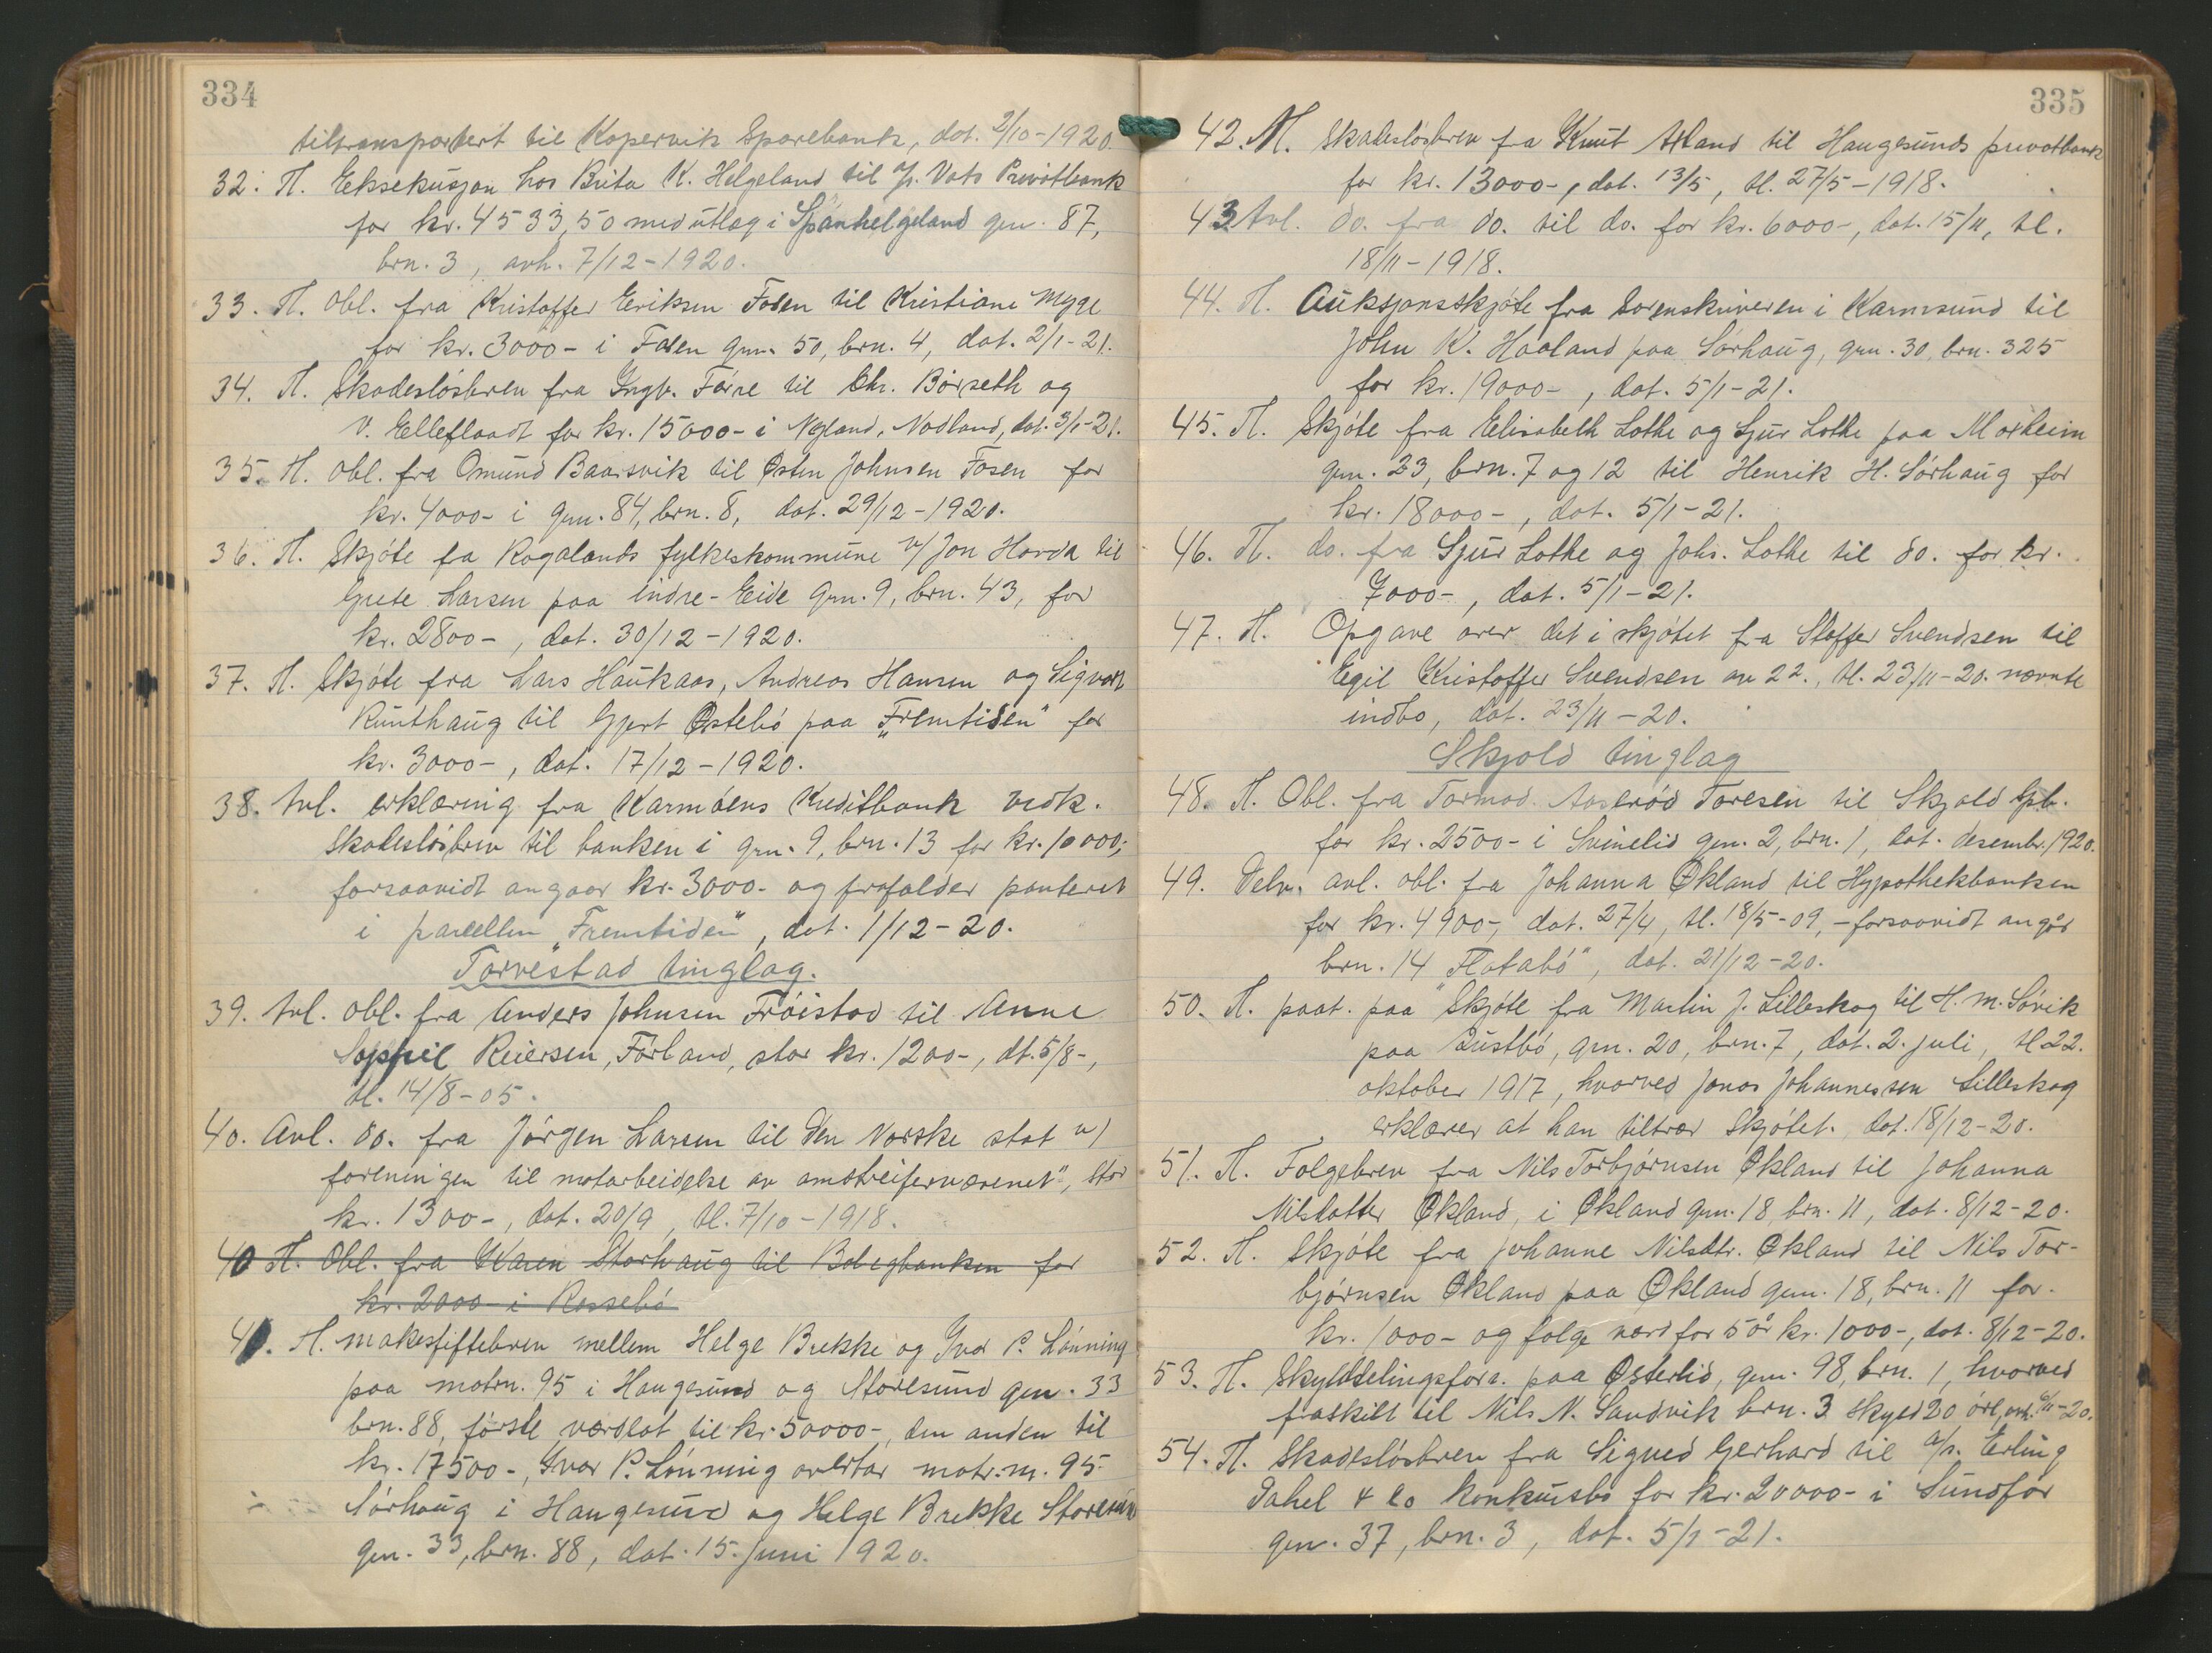 334
tiltransportert til Kopervik Sparebank, dat. 2/10-1920.
32. Tl. Eksekusjon hos Brita K. Helgeland til A/s. Vats Privatbank
for kr. 4533,50 med utlæg i Spanhelgeland gnr. 87,
brn. 3, avh. 7/12-1920.
33. Tl. Obl. fra Kristoffer Eriksen Fosen til Kristiane Myge
for kr. 3000- i Fosen gnr. 50, brn. 4, dat. 2/1-21.
34. Tl. Skadesløsbrev fra Ingv. Førre til Chr. Børseth og
V. Elleflaadt for kr. 15000- i Nyland, Nodland, dat. 3/1-21.
35. Tl. Obl. fra Omund Baarsvik til Østen Johnsen Fosen for
kr. 4000- i gnr. 84, brn. 8, dat. 29/12-1920.
36. Tl. Skjøte fa Rogalands fylkeskommune v/ Jon Horda til
Grete Larsen paa indre-Eide gnr. 9, brn. 43, for
kr. 2800-, dat. 30/12-1920.
37. Tl. Skjøte fra Lars Haukaas, Andreas Hansen og Sigvart
Runthaug til Gjert Østebø paa „Fremtiden" for
kr. 3000-, dat. 17/12-1920.
38. Avl. erklæring fra Karmøens Kreditbank vedk.
Skadesløsbrev til banken i gnr. 9, brn. 13 for kr. 10000,-
forsaavidt angaar kr. 3000- og frafalder panteret
i parcellen „Fremtiden", dat. 1/12-20.
Torvestad tinglag.
39. Avl. obl. fra Anders Johnsen Frøistad til Anne
Sophie Reiersen, Førland, stor kr. 1200-, dt. 5/8-,
tl. 14/8-05.
40. Avl. do. fra Jørgen Larsen til Den Norske stat v/
foreningen til motarbeidelse av omstreifervæsenet", stor
kr. 1300-, dat. 20/9, tl. 7/10-1918.
40 Tl. Obl. fra Karen Storhaug til Boligbanken for
kr. 2000- i Rossebø
41. Tl. makeskiftebrev mellem Helge Brekke og Ivar P. Lønning
paa matrn. 95 i Haugesund og Storesund gnr. 33
brn. 88, første værdsat til kr. 50000-, den anden til
kr. 17500-, Ivar P. Lønning overtar matr.nr. 95
Sørhaug i Haugesund og Helge Brekke Storesund
gnr. 33, brn. 88, dat. 15. juni 1920.
335
42. Tl. Skadesløsbrev fra Knut Atland til Haugesunds privatbank
for kr. 13000-, dat. 13/5, tl. 27/5-1918.
43 Avl. do. fra do. til do. for kr. 6000-, dat. 15/11, tl.
18/11-1918.
44. Tl. Auksjonsskjøte fra Sorenskriveren i Karmsund til
John K. Haaland paa Sørhaug, gnr. 30, brn. 325
for kr. 19000-, dat. 5/1-21.
45. Tl. Skjøte fra Elisabeth Lothe og Sjur Lothe paa Morheim
gnr. 23, brn. 7 og 12 til Henrik H. Sørhaug for
kr. 18000-, dat. 5/1-21.
46. Tl. do. fra Sjur Lothe og Johs. Lothe til do. for kr.
7000-, dat. 5/1-21.
47. Tl. Opgave over det i skjøtet fra Stoffer Svendsen til
Egil Kristoffer Svendsen av 22., tl. 23/11-20. nævnte
indbo, dat. 23/11-20.
Skjold tinglag
48. Tl. Obl. fra Tormod Aaserød Toresen til Skjold Spb.
for kr. 2500- i Svinelid gnr. 2, brn. 1, dat. desembr. 1920.
49. Delv. avl. obl. fra Johanna Økland til Hypothekbanken
for kr. 4900-, dat. 27/4, tl. 18/5-09, - forsaavidt angår
brn. 14 „Flatabø", dat. 21/12-20.
50. Tl. paat. paa Skjøte fra Martin J. Lilleskog til H. M. Søvik
paa Øustbø, gnr. 20, brn. 7, dat. 2. juli, tl 22.
oktober 1917, hvorved Jonas Johannessen Lilleskog
erklærer at han tiltrær skjøtet. dat. 18/12-20.
51. Tl. Følgebrev fra Nils Torbjørnsen Økland til Johanna
Nilsdatter Økland, i Økland gnr. 18 brn. 11, dat. 8/12-20.
52. Tl. Skjøte fra Johanne Nilsdtr. Økland til Nils Tor-
bjørnsen Økland paa Økland gnr. 18, brn. 11 for
kr. 1000- og følge værd for 5 år kr. 1000-, dat. 8/12-20.
53. Tl. Skylddelingsforr. paa Østerlid, gnr. 98, brn. 1, hvorved
fraskilt til Nils N. Sandvik brn. 3 skyld 20 øre, avh. 6/11-20.
54. Tl. Skadesløsbrev fra Sigved Gerhard til A/s. Erling
Dahl & Co konkursbo for kr. 20000- i Sundfør
gnr. 37, brn. 3, dat. 5/1-21.